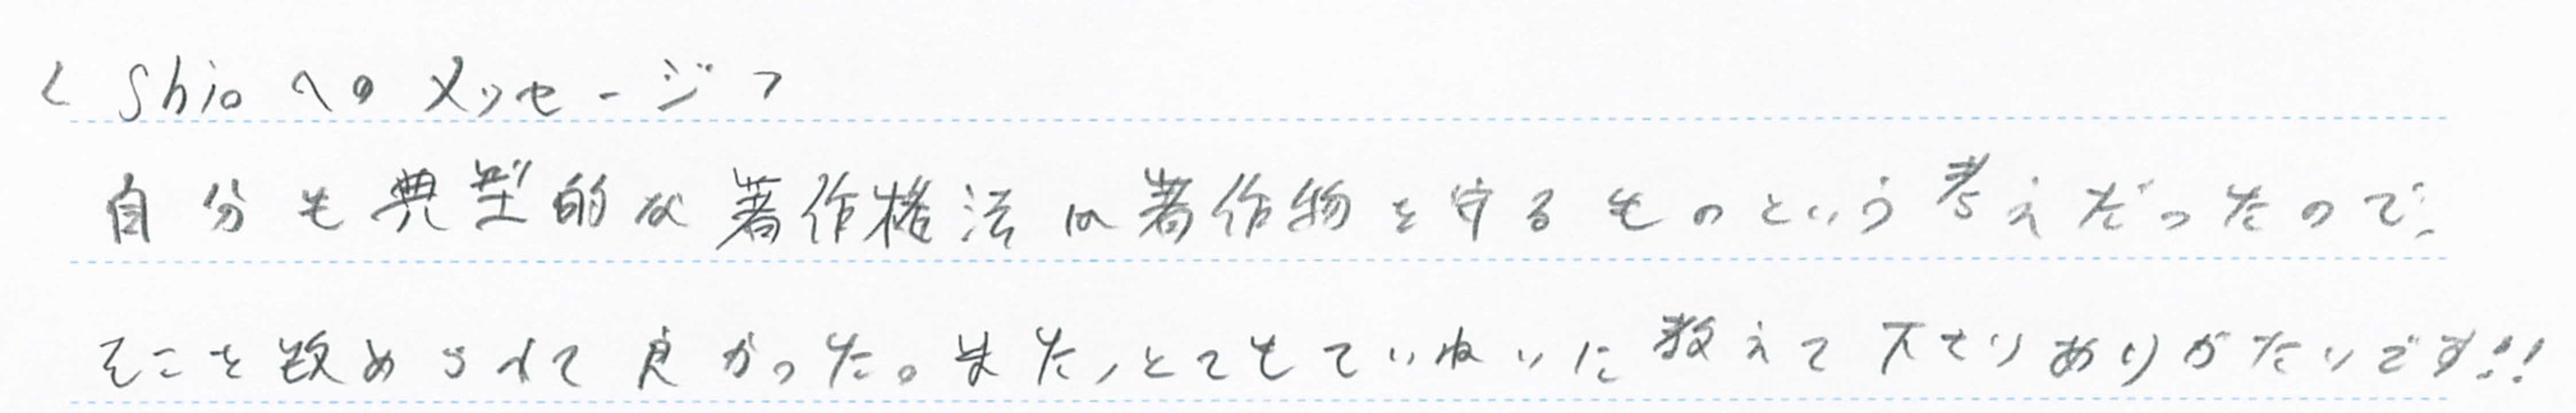 <Shioへのメッセージ>
自分も典型的な著作権法は著作物を守るものという考えだったので、
そこを改められて良かった。また、とてもていねいに教えて下さりありがたいです!!